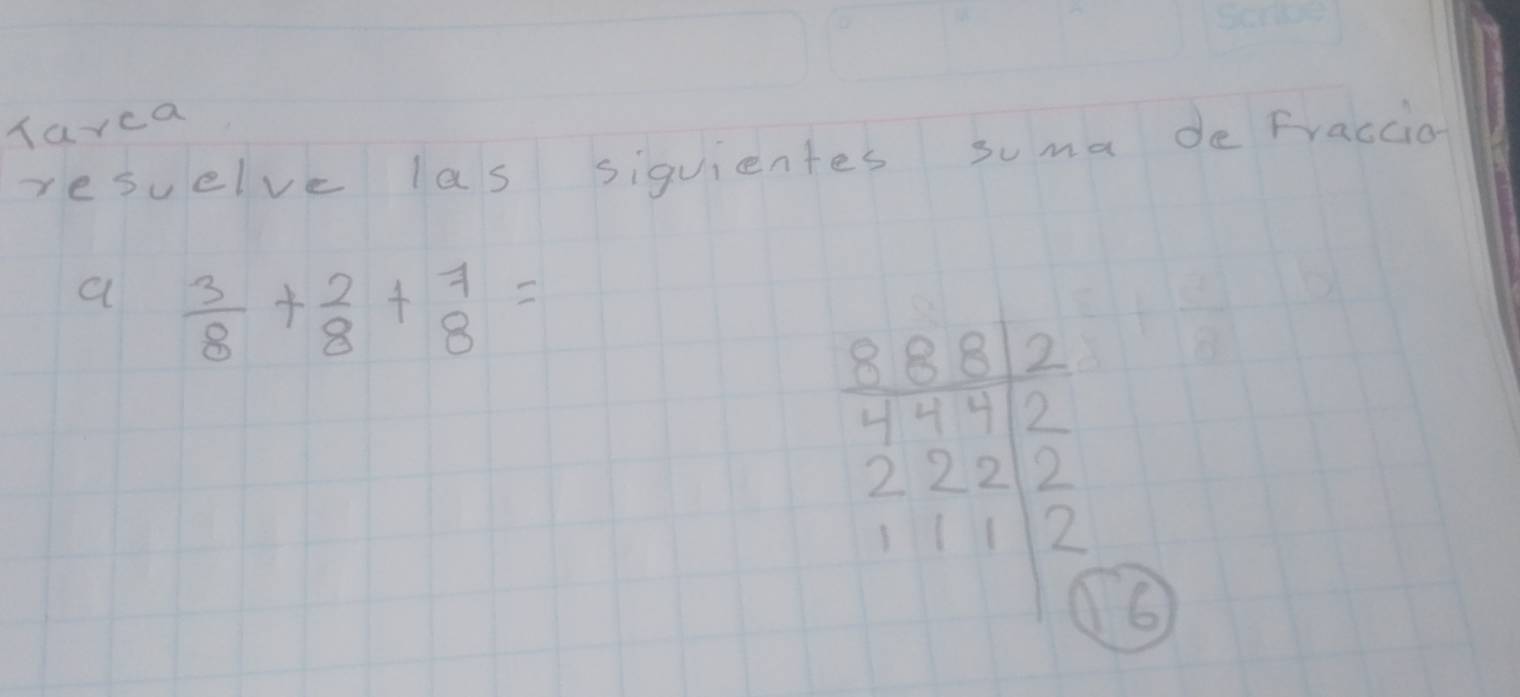 Scribe
Tarea
resuelve las siguientes suma de Fraccio
a 3/8 + 2/8 + 7/8 =
8 8 8 | 2
4 4 4 | 2
2 2 2 | 2
1 1 1 | 2
16